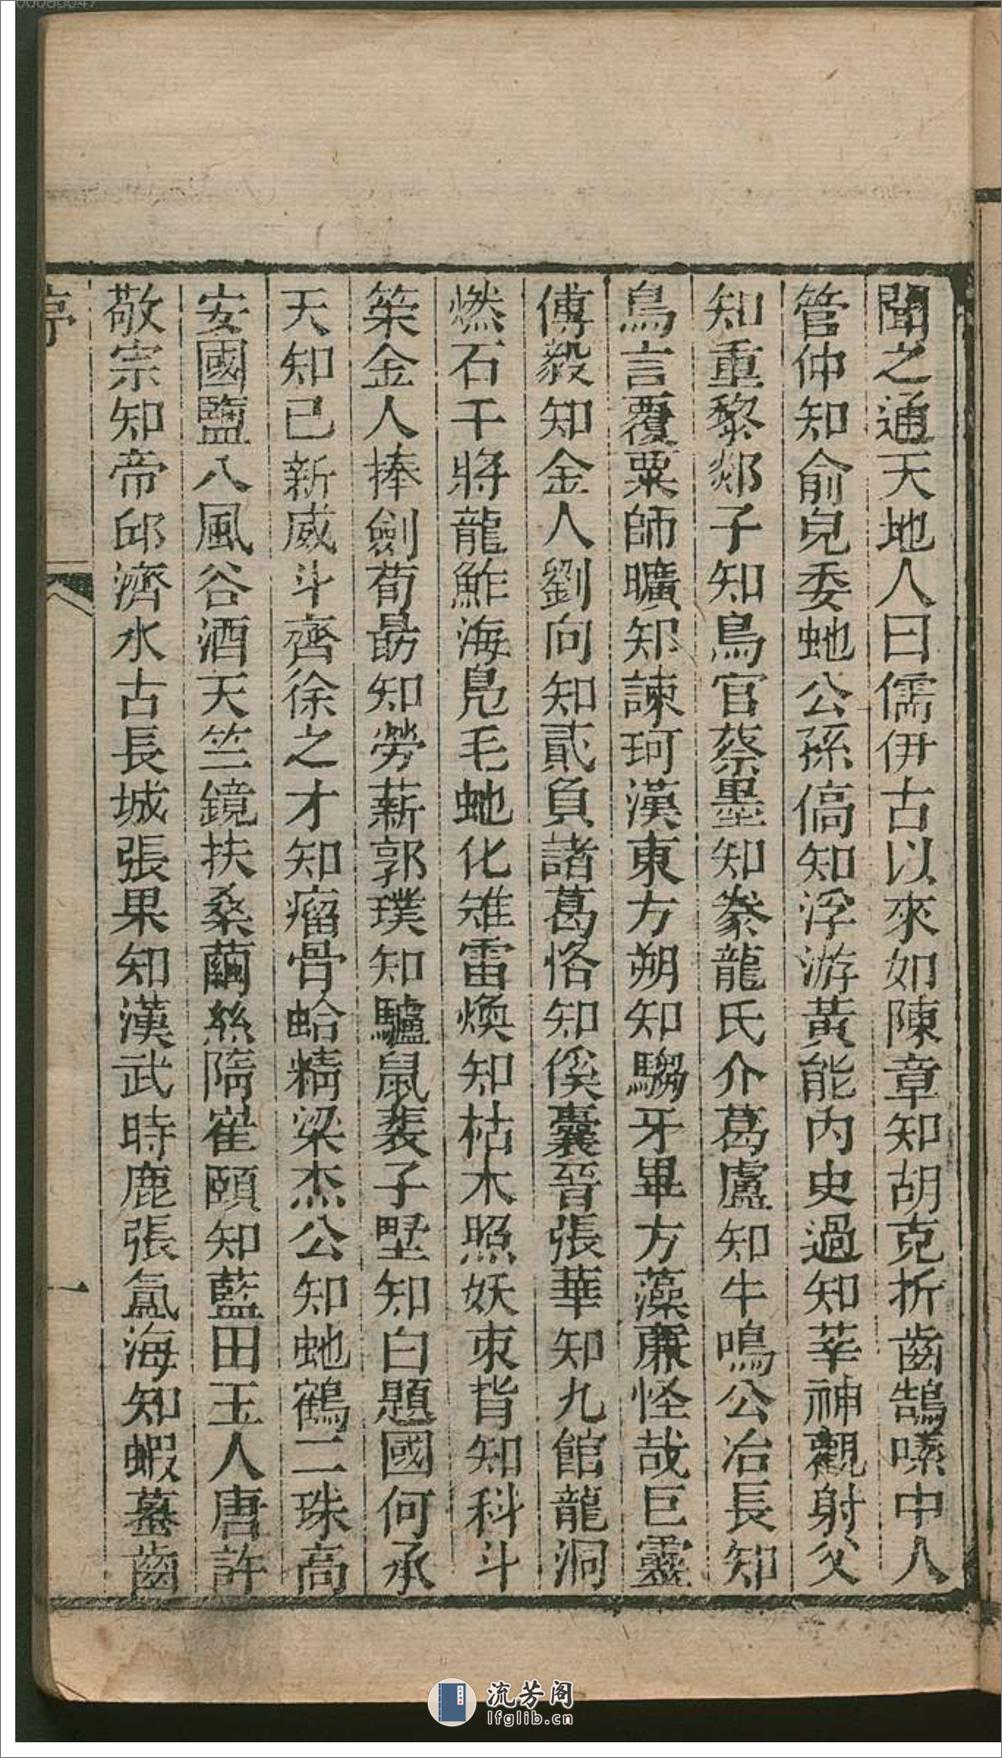 聞之通天地人曰儒伊古以來如陳章知胡克折齒鵠嗉中人
管仲知俞兒委蛇公孫僑知浮游黃能內史過知莘神觀射父
知重黎郯子知鳥官蔡墨知豢龍氏介葛盧知牛鳴公冶長知
鳥言覆粟師曠知諫珂漢東方朔知騶牙畢方藻廉怪哉巨靈
傅毅知金人劉向知貳負諸葛恪知傒囊晉張華知九館龍洞
燃石干將龍鮓海鳧毛虵化雉雷煥知枯木照妖朿皙知科斗
筞金人捧劍荀勗知勞薪郭璞知驢鼠裴子野知白題國何承
天知已新威斗齊徐之才知瘤骨蛤精梁杰公知虵鶴二珠高
安國鹽八風谷酒天竺鏡扶桑繭絲隋崔頤知藍田玉人唐許
敬宗知帝邱濟水古長城張果知漢武時鹿張氳海知蝦蟇齒
序
一
流芳阁
lfglib.cn